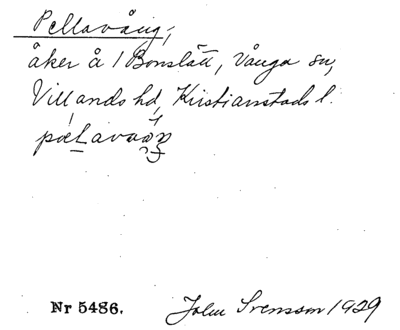 Pellavång,
åker å 1 Bonslätt, Vånga sn,
Villands hd, Kristianstads l.
Nr 5486. John Svensson 1929